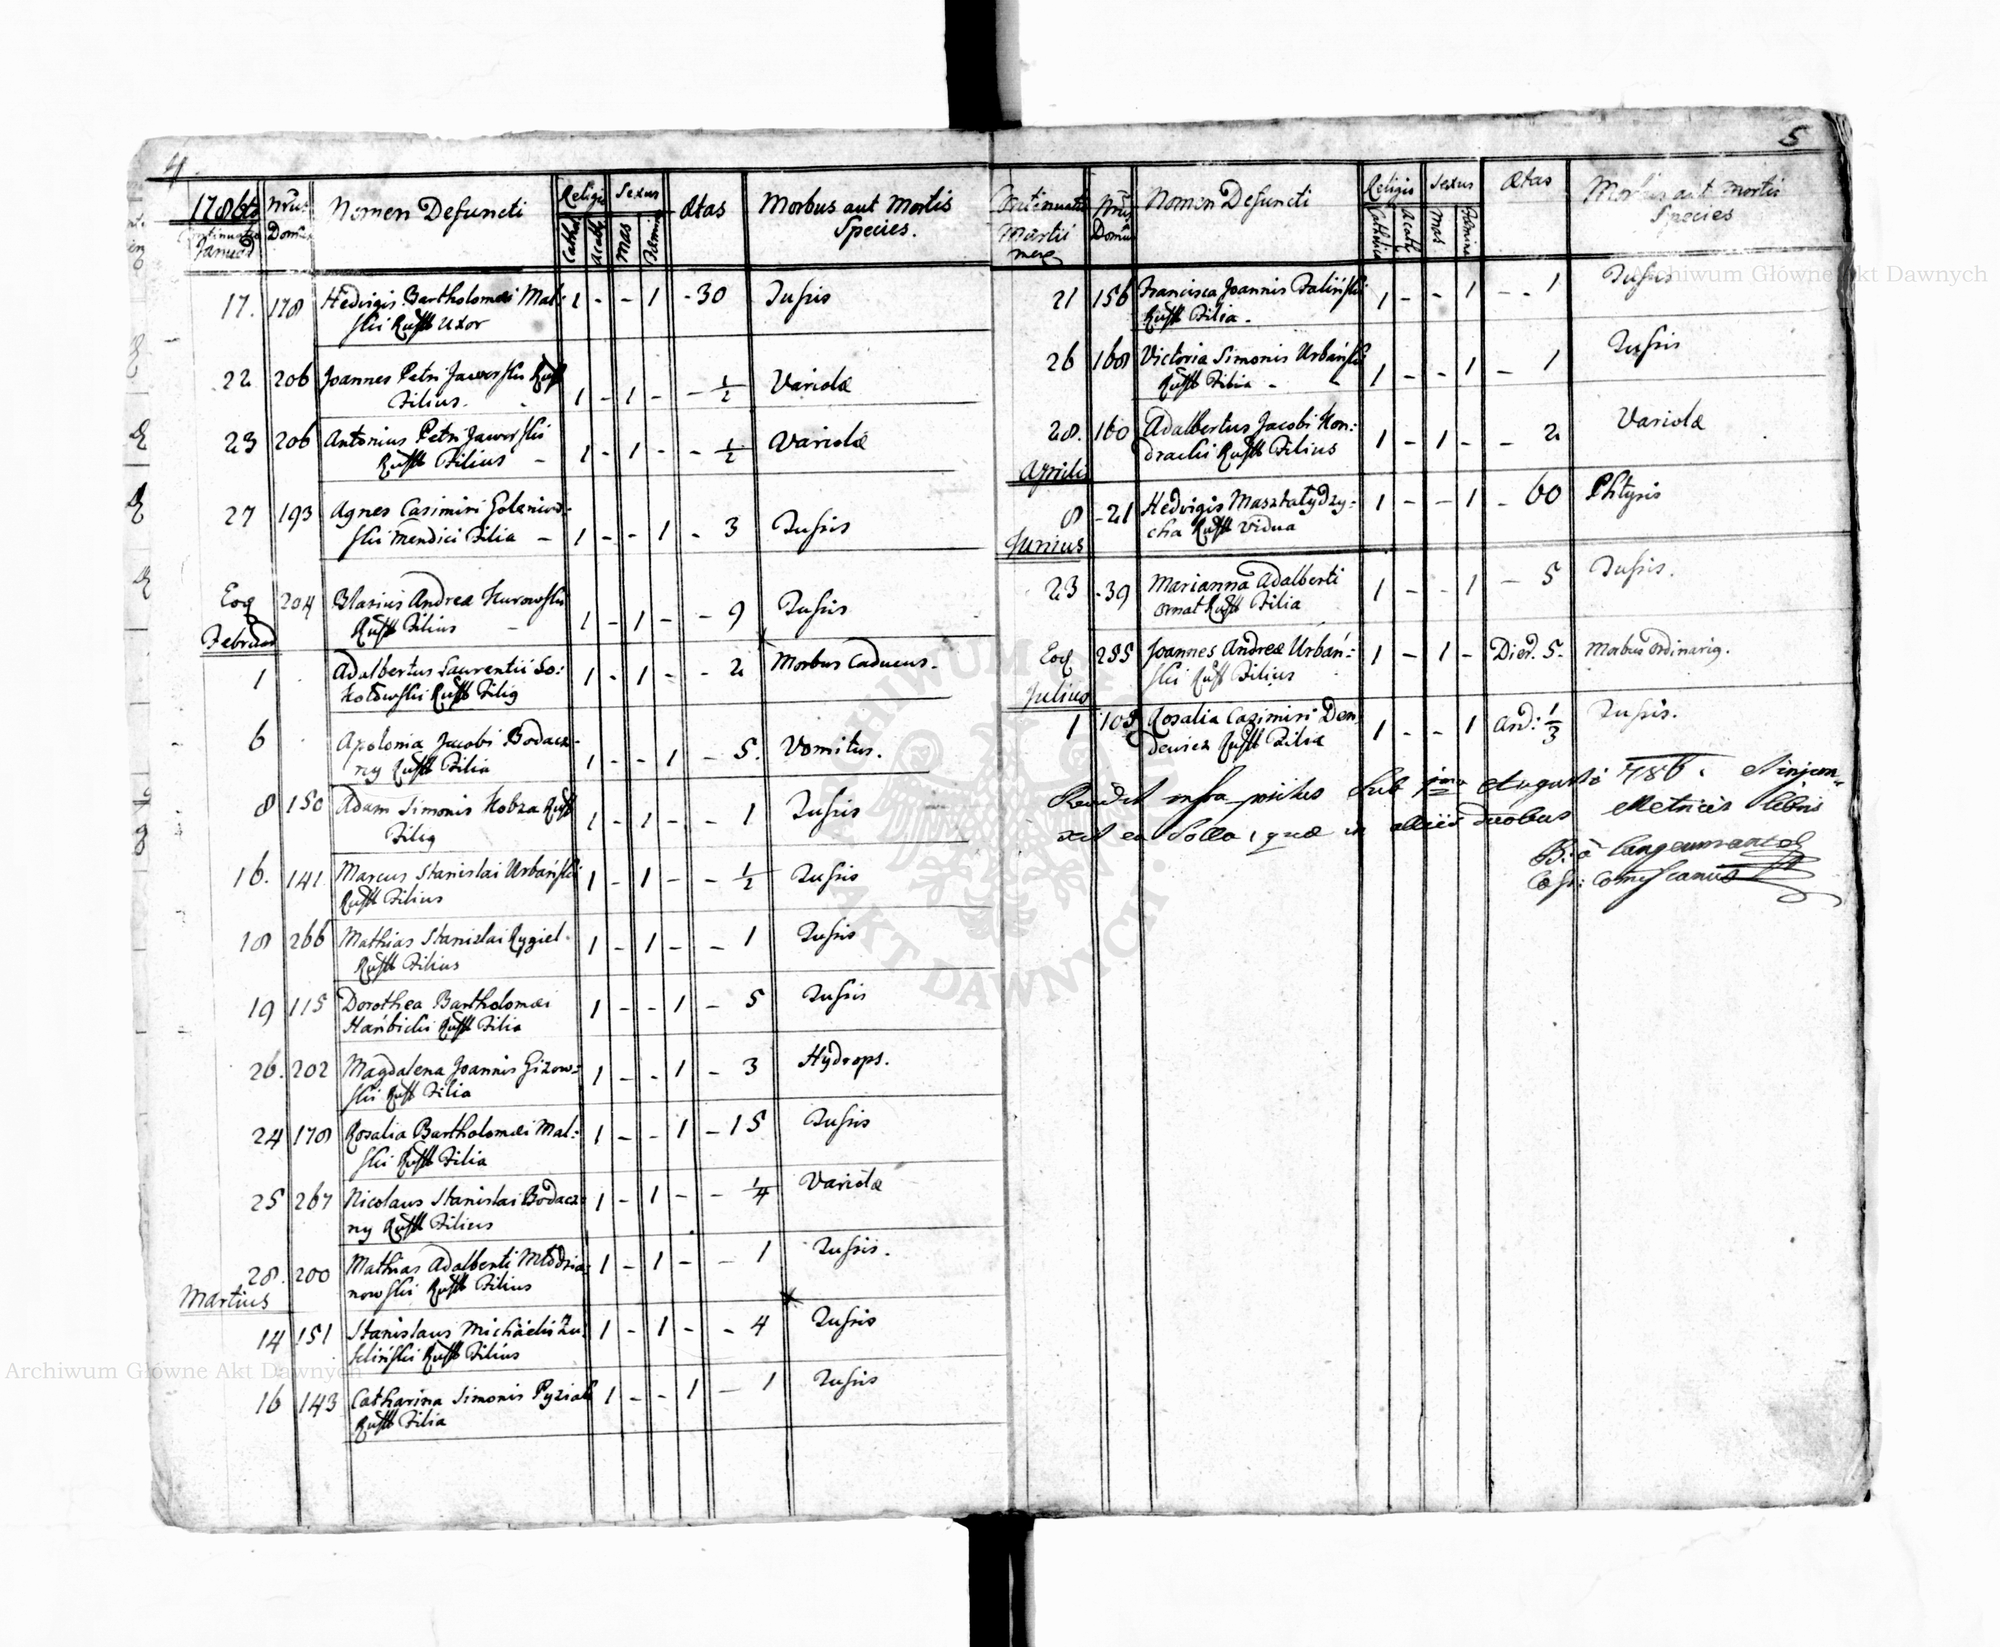 4.
1786to Nrus Nomen Defuncti Religio Sexus Ætas Morbus aut Mortis
Continuatio Domus Cathol Acath Mas Femina Species.
Januarii
17. 178 Hedvigis Bartholomæi Mal: 1 - - 1 - 30 Tussis
ski Rust Uxor
22 206 Joannes Petri Jaworski Rust 1 - 1 - - 1/2 Variolæ
Filius.
23 206 Antonius Petri Jaworski 1 - 1 - - 1/2 Variolæ
Rust Filius
27 193 Agnes Casimiri Goleniow- 1 - - 1 - 3 Tussis
ski Mendici Filia
Eoq 204 Blasius Andrea Kurowski 1 - 1 - - 9 Tussis
Rust Filius
Februarii
1 Adalbertus Laurentii So: 1 - 1 - - 2 Morbus Caducus.
kołowski Rust Filiq
6 Apolonia Jacobi Bodacz- 1 - - 1 - 5. Vomitus.
ny Rust Filia
8 150 Adam Simonis Kobza Rust 1 - 1 - - 1 Tussis
Filiq
16. 141 Marcus Stanislai Urbański 1 - 1 - - 1/2 Tussis
Rust Filius
18 266 Mathias Stanislai Rygiel 1 - 1 - - 1 Tussis
Rust Filius
19 115 Dorothea Bartholomæi 1 - - 1 - 5 Tussis
Hańbicki Rust Filia
26. 202 Magdalena Joannis Gizow- 1 - - 1 - 3 Hydrops.
ski Rust Filia
24 178 Rosalia Bartholomæi Mal: 1 - - 1 - 15 Tussis
ski Rust Filia
25 267 Nicolaus Stanislai Bodacz- 1 - 1 - - 1/4 Variolæ
ny Rust Filius
28. 200 Mathias Adalberti Młodzia- 1 - 1 - - 1 Tussis.
nowski Rust Filius
Martius
14 151 Stanislaus Michaelis Zu- 1 - 1 - - 4 Tussis
Rust Filius
16 143 Catharina Simonis Pyziak 1 - - 1 - 1 Tussis
Rust Filia
5
Continuatio Nrus Nomen Defuncti Religio Sexus Ætas Morbus aut Mortis
Martii Domus Catholica Acath Mas Femina Species
21 156 Francisca Joannis Faliński 1 - - 1 - - 1 Tussis
Rust Filia.
26 168 Victoria Simonis Urbański 1 - - 1 - 1 Tussis
Rust Filia
28. 160 Adalbertus Jacobi Kon: 1 - 1 - - 2 Variolæ
dracki Rust Filius
Aprilis
8 -21 Hedvigis Maształydzy- 1 - - 1 - 60 Phtysis
cha Rust Vidua
Junius
23 -39 Marianna Adalberti 1 - - 1 - 5 Tussis.
Ornat Rust Filia
Eoq 255 Joannes Andreæ Urbań- 1 - 1 - Dier. 5. Morbus Ordinariq.
ski Rust Filius
Julius
1 Rosalia Casimiri Den 1 - - 1 1/3 Tussis.
dewicz Rust Filia
infra positus Sub Augusti 786.
ea Solla, quæ in aliis duobus Metricis libris
Archiwum Główne Akt Dawnych
Archiwum Główne Akt Dawnych
ARCHIWUM GŁÓWNE AKT DAWNYCH